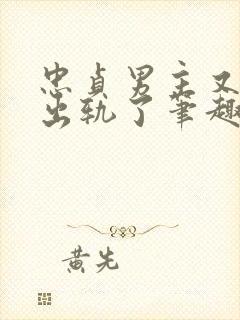 忠贞男主又
出轨了笔趣
黄先